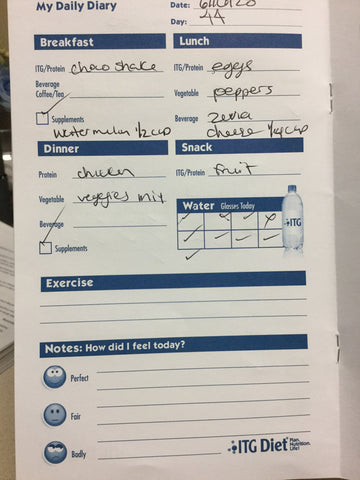 My Daily Diary
Date:
Day: 44
Breakfast
ITG/Protein choco shake
Beverage
Coffee/Tea
Supplements
watermelon 1/2 cup
Lunch
ITG/Protein eggs
Vegetable peppers
Beverage
cheese 1/4 cup
Dinner
Protein chicken
Vegetable veggies mix
Beverage
Supplements
Snack
ITG/Protein fruit
Water Glasses Today
ITG
Exercise
Notes: How did I feel today?
Perfect
Fair
Badly
ITG Diet Plan. Nutrition. Life!